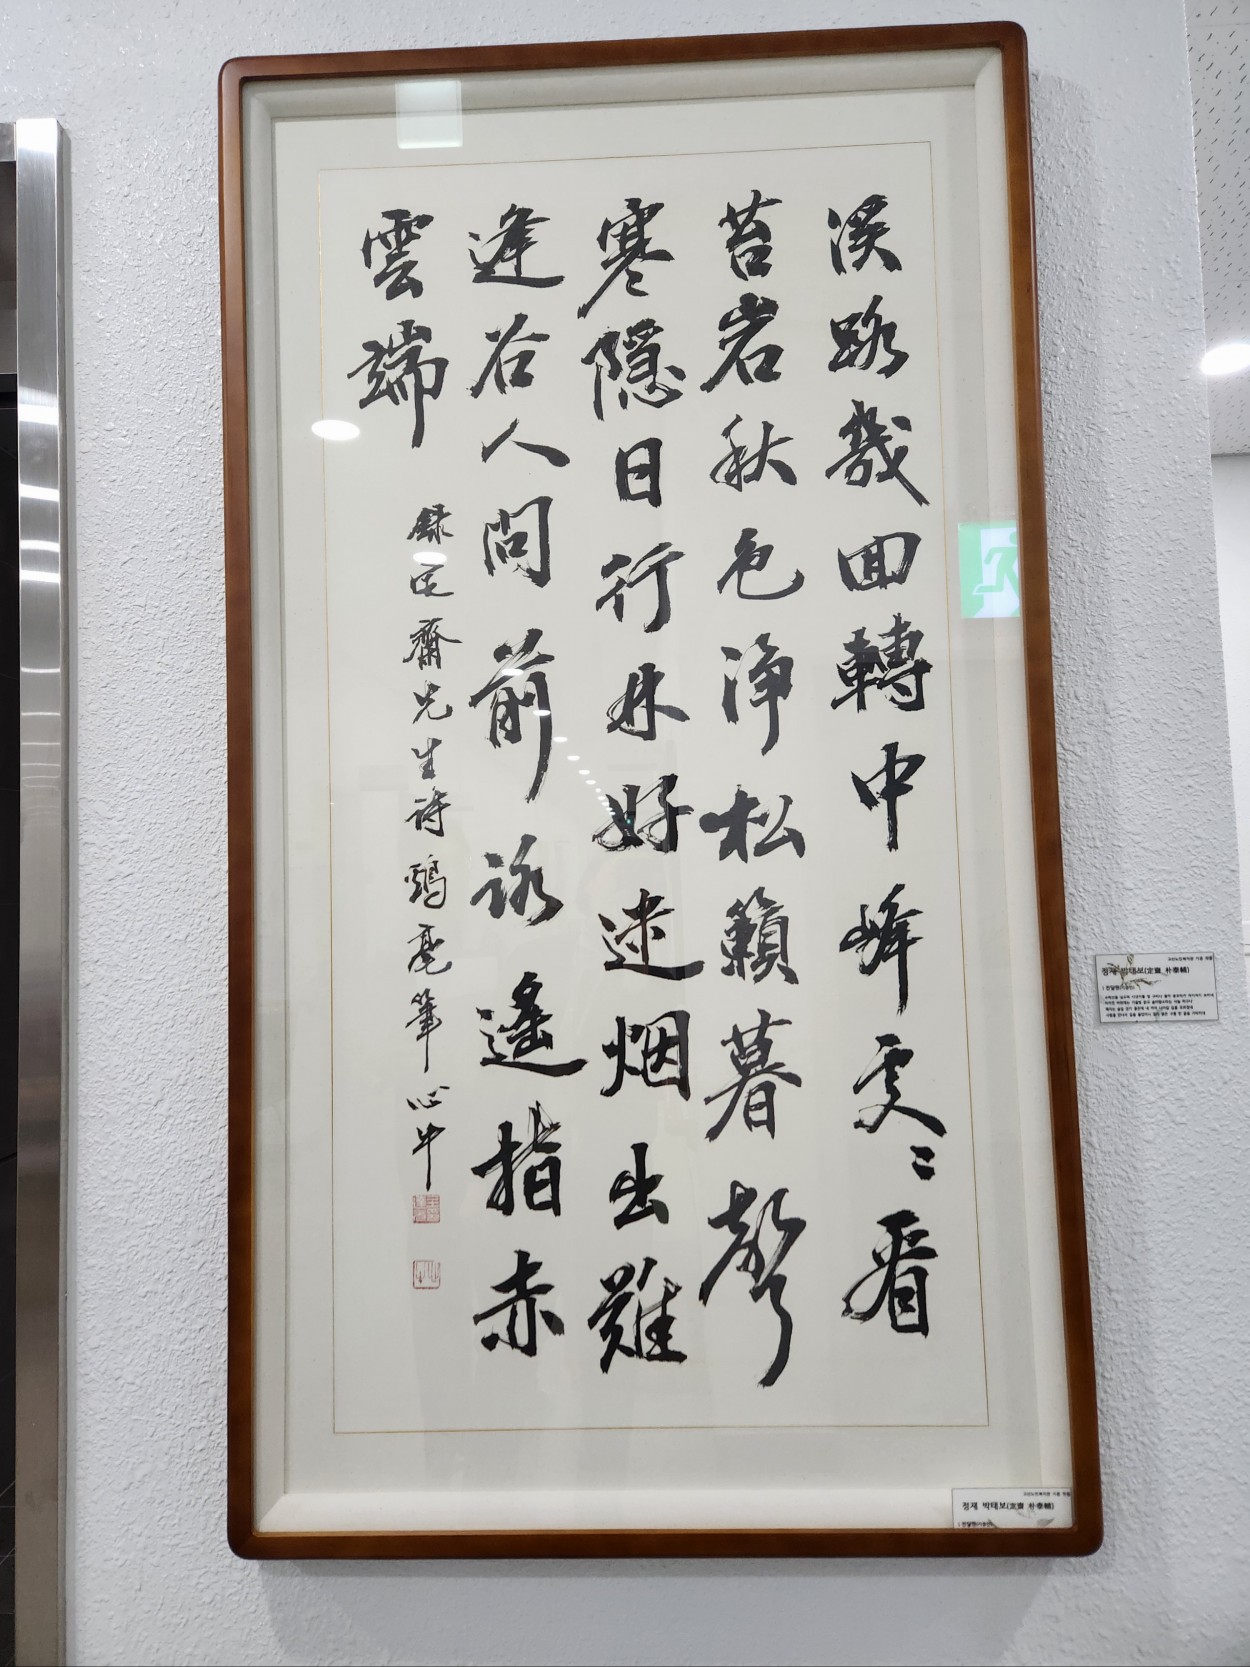 溪路幾回轉中峰處〻看
苔岩秋色淨松籟暮聲
寒隱日行林好迷烟出難
逢谷人問前詠遙指赤
雲端
錄定齋先生詩 鵠亳筆 心牛
정재 박태보(定齋 朴泰輔)
정재 박태보(定齋 朴泰輔)